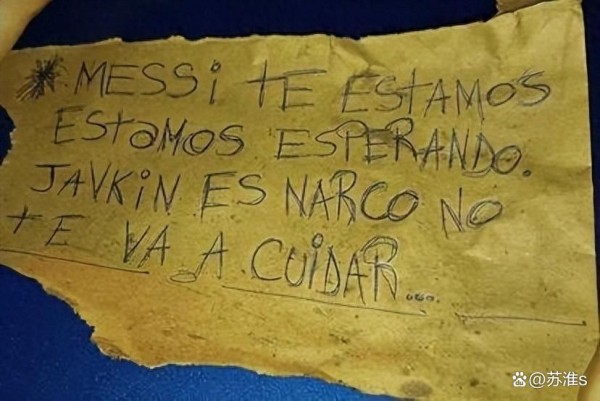 * MESSi TE ESTAMOS
EStaMOS ESPERANDO.
JAVKiN ES NARCO NO
tE VA A CUiDAR....
@苏淮s